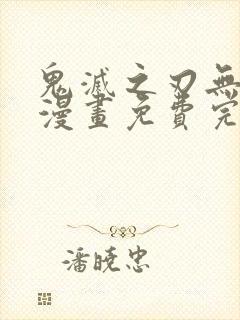 鬼滅之刃無
漫畫免費完
潘曉忠